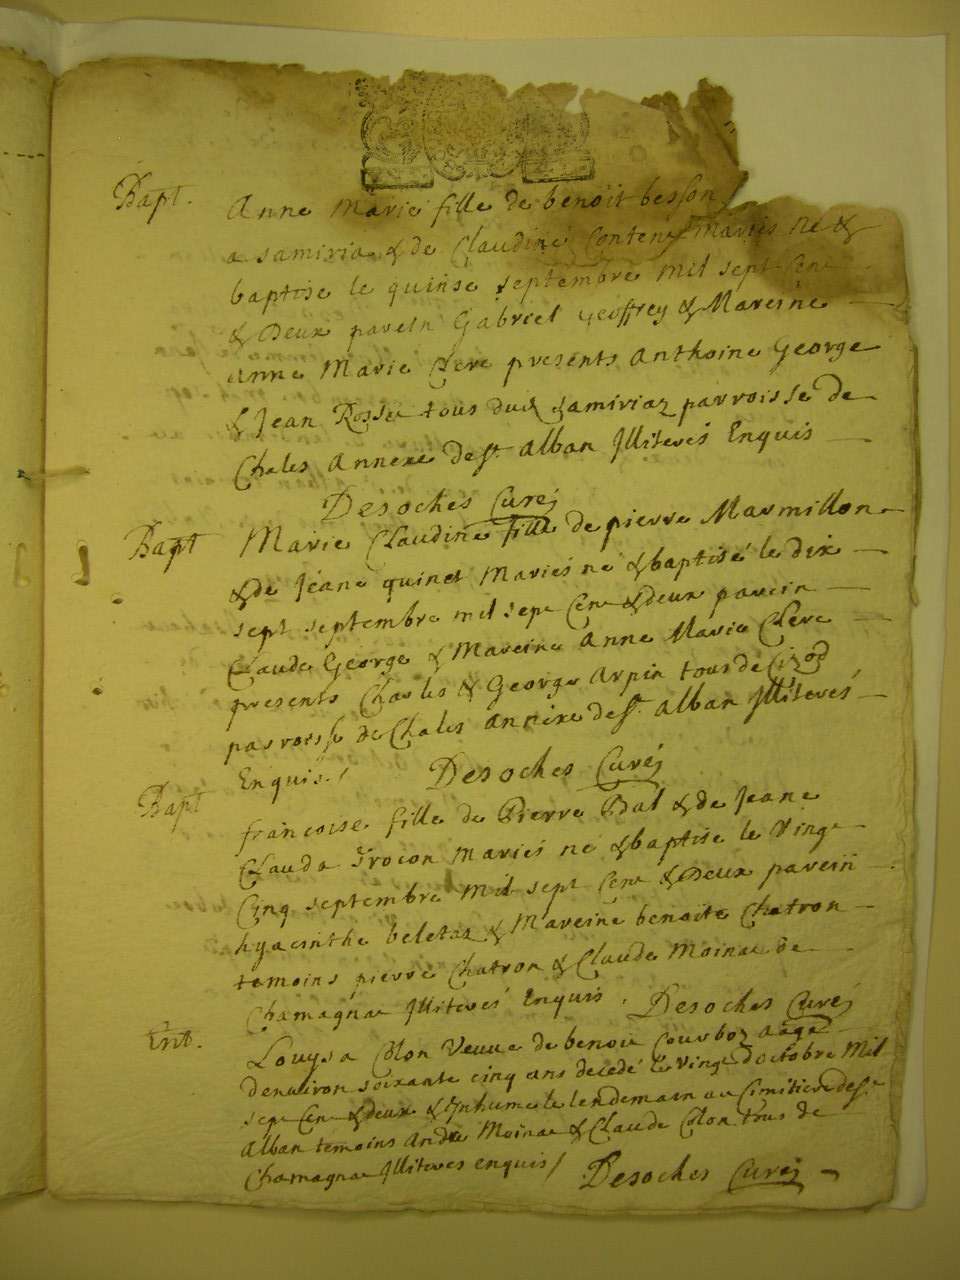 Bapt.
Anne Marie fille de benoit besson
a samiria & de Claudine Conten Mariés né &
baptise le quinse septembre mil sept Cent
& Deux parein Gabriel geoffrey & Mareine
Anne Marie Clere presents Anthoine George
& Jean Rosse tous dud samiriaz parroisse de
Chales Annexe de St. Alban Illiterés Enquis
Desoches Curé
Bapt
Marie Claudine fille de pierre Marmillon
& de Jeane quinet Mariés né & baptisé le dix
sept septembre mil sept Cent & deux parein
Claude George & Mareine Anne Marie Clere
presents Charles & George Arpin tous de Cizod
parroisse de Chales annexe de St. Alban Illiterés
Enquis./
Desoches Curé
Bapt
francoise fille de Pierre Bal & de Jeane
Clauda Trocon Mariés né & baptise le Vingt
Cinq septembre Mil sept Cent & Deux parein
hyacinthe beletaz & Mareine benoite Chatron
temoins pierre Chatron & Claude Moinat de
Chamagnat Illiterés Enquis.
Desoches Curé
Ent.
Louysa Colon Veuve de benoit Courboz aagé
denuiron soixante cinq ans decedé le vingt doctobre Mil
sept Cent & deux & Inhume le lendemain au Cimitiere de St
Alban temoins André Moinat & Claude Colon tous de
Chamagnat Illiteres enquis/
Desoches Curé